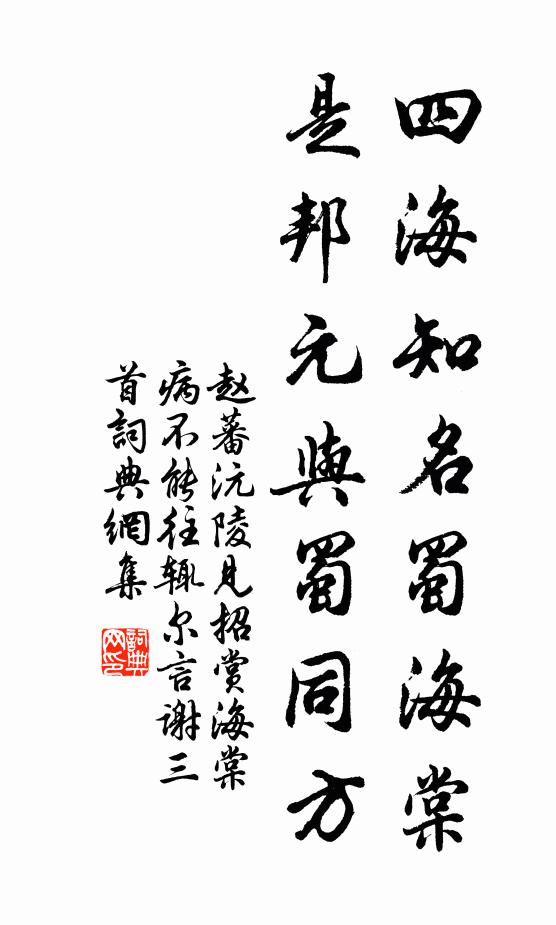 四海知名蜀海棠
是邦元與蜀同方
赵蕃沅陵見招赏海棠
病不能往辄尔言谢三
首詞典網集
詞典网印